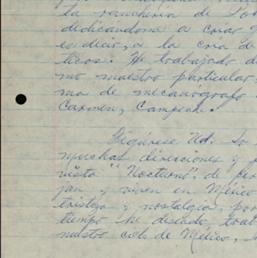 la ranchería de
dedicándome a
en dicio, a la cría de
ticos. He trabajado d
mo maestro particular
ma de mecanógrafo
Carmen, Campech.
Figúrese Ud.
muchas direcciones y
vista "Nocturno" de
jan y viven en México
tristeza y nostalgia, por
tiempo he deseado,
nuestro cielo de México,